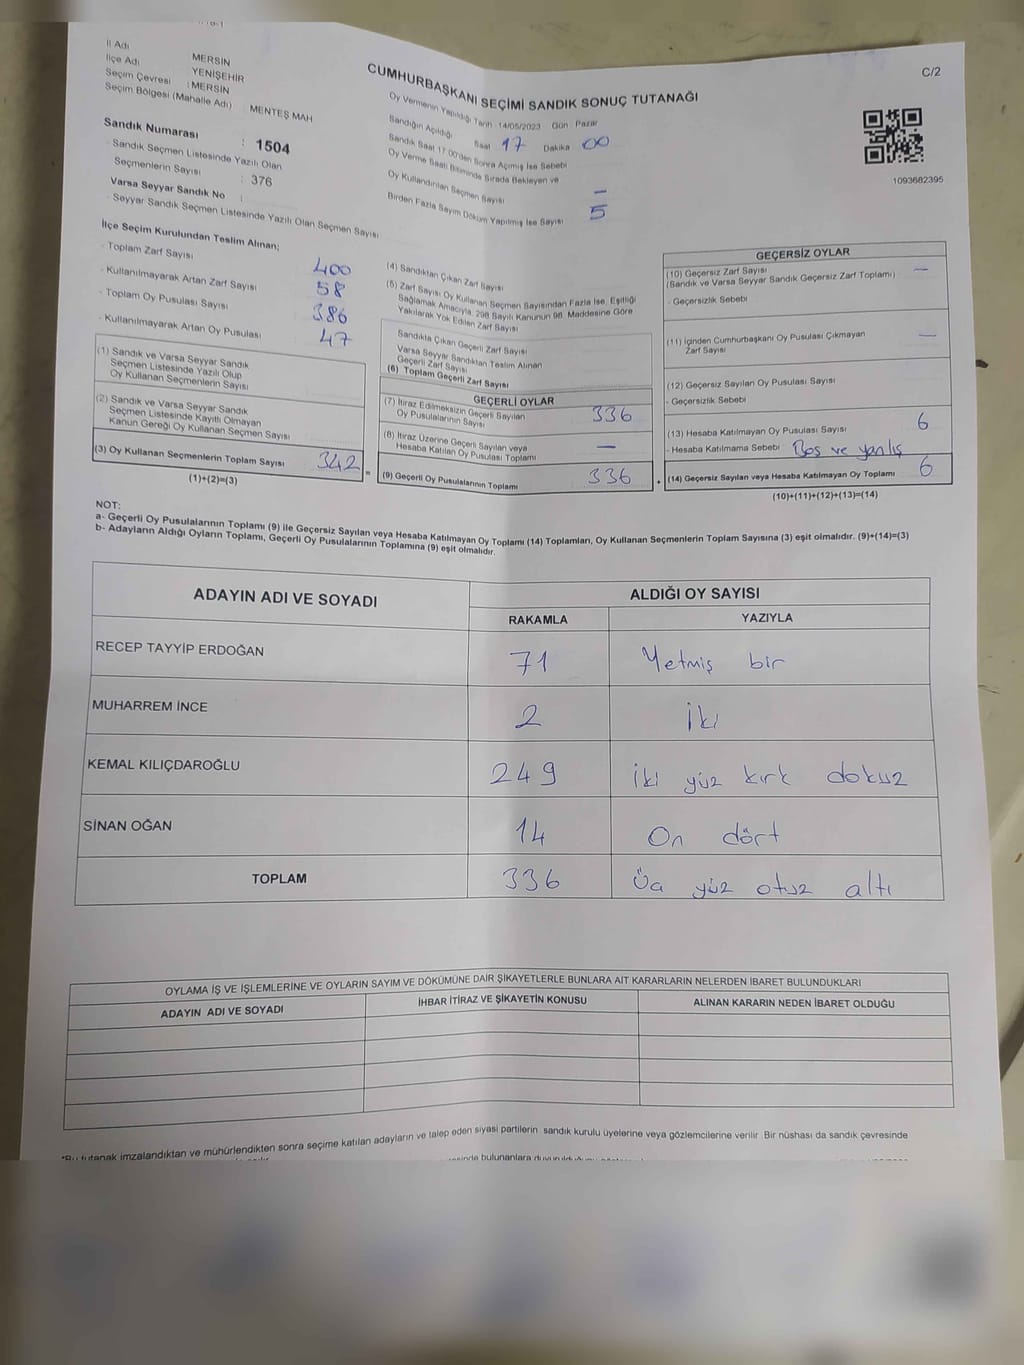 C/2
İl Adı MERSİN
İlçe Adı YENİŞEHİR
Seçim Çevresi : MERSİN
Seçim Bölgesi (Mahalle Adı) : MENTEŞ MAH
Sandık Numarası : 1504
- Sandık Seçmen Listesinde Yazılı Olan
Seçmenlerin Sayısı : 376
Varsa Seyyar Sandık No :
- Seyyar Sandık Seçmen Listesinde Yazılı Olan Seçmen Sayısı
CUMHURBAŞKANI SEÇİMİ SANDIK SONUÇ TUTANAĞI
Oy Vermenin Yapıldığı Tarih 14/05/2023 Gün Pazar
Sandığın Açıldığı Saat 17 Dakika 00
Sandık Saat 17.00'den Sonra Açılmış İse Sebebi
Oy Verme Saati Bitiminde Sırada Bekleyen ve
Oy Kullandırılan Seçmen Sayısı —
Birden Fazla Sayım Döküm Yapılmış İse Sayısı 5
1093682395
İlçe Seçim Kurulundan Teslim Alınan;
- Toplam Zarf Sayısı 400
- Kullanılmayarak Artan Zarf Sayısı 58
- Toplam Oy Pusulası Sayısı 386
- Kullanılmayarak Artan Oy Pusulası 47
(1) Sandık ve Varsa Seyyar Sandık
Seçmen Listesinde Yazılı Olup
Oy Kullanan Seçmenlerin Sayısı
(2) Sandık ve Varsa Seyyar Sandık
Seçmen Listesinde Kayıtlı Olmayan
Kanun Gereği Oy Kullanan Seçmen Sayısı
(3) Oy Kullanan Seçmenlerin Toplam Sayısı 342 =
(1)+(2)=(3)
(4) Sandıktan Çıkan Zarf Sayısı
(5) Zarf Sayısı Oy Kullanan Seçmen Sayısından Fazla İse, Eşitliği
Sağlamak Amacıyla, 298 Sayılı Kanunun 98. Maddesine Göre
Yakılarak Yok Edilen Zarf Sayısı
Sandıkta Çıkan Geçerli Zarf Sayısı
Varsa Seyyar Sandıktan Teslim Alınan
Geçerli Zarf Sayısı
(6) Toplam Geçerli Zarf Sayısı
GEÇERLİ OYLAR
(7) İtiraz Edilmeksizin Geçerli Sayılan
Oy Pusulalarının Sayısı 336
(8) İtiraz Üzerine Geçerli Sayılan veya
Hesaba Katılan Oy Pusulası Toplamı —
(9) Geçerli Oy Pusulalarının Toplamı 336 +
GEÇERSİZ OYLAR
(10) Geçersiz Zarf Sayısı —
(Sandık ve Varsa Seyyar Sandık Geçersiz Zarf Toplamı)
- Geçersizlik Sebebi
(11) İçinden Cumhurbaşkanı Oy Pusulası Çıkmayan —
Zarf Sayısı
(12) Geçersiz Sayılan Oy Pusulası Sayısı
- Geçersizlik Sebebi
(13) Hesaba Katılmayan Oy Pusulası Sayısı 6
- Hesaba Katılmama Sebebi Boş ve yanlış
(14) Geçersiz Sayılan veya Hesaba Katılmayan Oy Toplamı 6
(10)+(11)+(12)+(13)=(14)
NOT:
a- Geçerli Oy Pusulalarının Toplamı (9) ile Geçersiz Sayılan veya Hesaba Katılmayan Oy Toplamı (14) Toplamları, Oy Kullanan Seçmenlerin Toplam Sayısına (3) eşit olmalıdır. (9)+(14)=(3)
b- Adayların Aldığı Oyların Toplamı, Geçerli Oy Pusulalarının Toplamına (9) eşit olmalıdır.
ADAYIN ADI VE SOYADI ALDIĞI OY SAYISI
RAKAMLA YAZIYLA
RECEP TAYYİP ERDOĞAN 71 Yetmiş bir
MUHARREM İNCE 2 İki
KEMAL KILIÇDAROĞLU 249 İki yüz kırk dokuz
SİNAN OĞAN 14 On dört
TOPLAM 336 Üç yüz otuz altı
OYLAMA İŞ VE İŞLEMLERİNE VE OYLARIN SAYIM VE DÖKÜMÜNE DAİR ŞİKAYETLERLE BUNLARA AİT KARARLARIN NELERDEN İBARET BULUNDUKLARI
ADAYIN ADI VE SOYADI İHBAR İTİRAZ VE ŞİKAYETİN KONUSU ALINAN KARARIN NEDEN İBARET OLDUĞU
*Bu tutanak imzalandıktan ve mühürlendikten sonra seçime katılan adayların ve talep eden siyasi partilerin sandık kurulu üyelerine veya gözlemcilerine verilir. Bir nüshası da sandık çevresinde